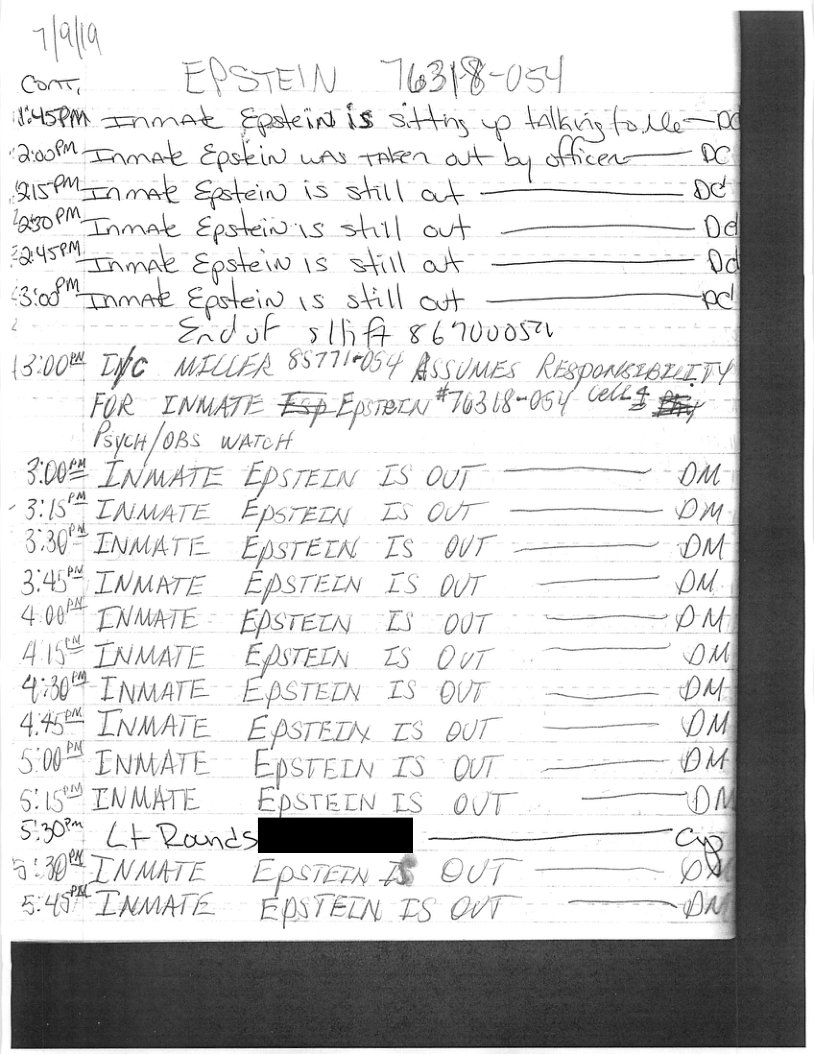 7/9/19
CONT.
EPSTEIN 76318-054
1:45PM Inmate Epstein is sitting up talking to Me DC
2:00PM Inmate Epstein was taken out by officer DC
2:15PM Inmate Epstein is still out DC
2:30PM Inmate Epstein is still out DC
2:45PM Inmate Epstein is still out DC
3:00PM Inmate Epstein is still out DC
End of shift
3:00PM I/C MILLER 85771-054 ASSUMES RESPONSIBILITY
FOR INMATE Esp EPSTEIN #76318-054 Cell 4
PSYCH/OBS WATCH
3:00PM INMATE EPSTEIN IS OUT DM
3:15PM INMATE EPSTEIN IS OUT DM
3:30PM INMATE EPSTEIN IS OUT DM
3:45PM INMATE EPSTEIN IS OUT DM
4:00PM INMATE EPSTEIN IS OUT DM
4:15PM INMATE EPSTEIN IS OUT DM
4:30PM INMATE EPSTEIN IS OUT DM
4:45PM INMATE EPSTEIN IS OUT DM
5:00PM INMATE EPSTEIN IS OUT DM
5:15PM INMATE EPSTEIN IS OUT DM
5:30PM Lt Rounds
5:30PM INMATE EPSTEIN IS OUT DM
5:45PM INMATE EPSTEIN IS OUT DM